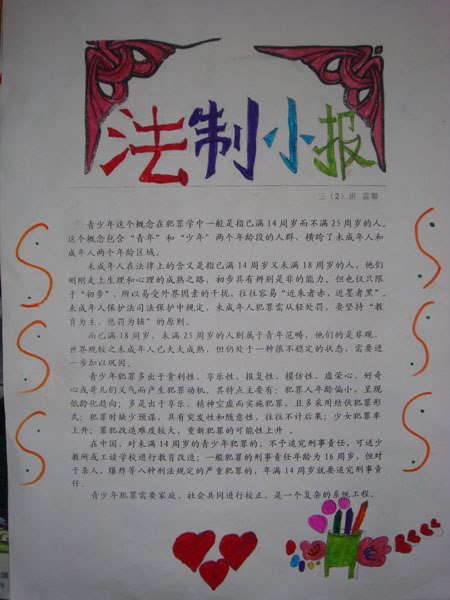 法制小报
三（2）班 黄攀
青少年这个概念在犯罪学中一般是指已满14周岁而不满25周岁的人。
这个概念包含“青年”和“少年”两个年龄段的人群，横跨了未成年人和
成年人两个年龄区域。
未成年人在法律上的含义是指已满14周岁又未满18周岁的人，他们
刚刚走上生理和心理的成熟之路，初步具有辨别是非的能力。但也仅只限
于“初步”，所以易受外界因素的干扰，往往容易“近朱者赤，近墨者黑”。
未成年人保护法司法保护中规定，未成年人犯罪需从轻处罚，要坚持“教
育为主，惩罚为辅”的原则。
而已满18周岁，未满25周岁的人则属于青年范畴，他们的是非观，
世界观较之未成年人已大大成熟，但仍处于一种很不稳定的状态，需要进
一步加以巩固。
青少年犯罪多出于贪利性、享乐性、报复性、模仿性、虚荣心、好奇
心或哥儿们义气而产生犯罪动机。其特点主要有：犯罪人年龄偏小，呈现
低龄化趋向；多是出于享乐、精神空虚而实施犯罪，且多采用结伙犯罪形
式；犯罪时缺少预谋，具有突发性和随意性，往往不计后果；少女犯罪率
上升；罪犯改造难度较大，重新犯罪的可能性上升。
在中国，对未满14周岁的青少年犯罪的，不予追究刑事责任，可送少
教所或工读学校进行教育改造；一般犯罪的刑事责任年龄为16周岁，但对
于杀人、爆炸等八种刑法规定的严重犯罪的，年满14周岁就要追究刑事责
任。
青少年犯罪需要家庭、社会共同进行校正，是一个复杂的系统工程。